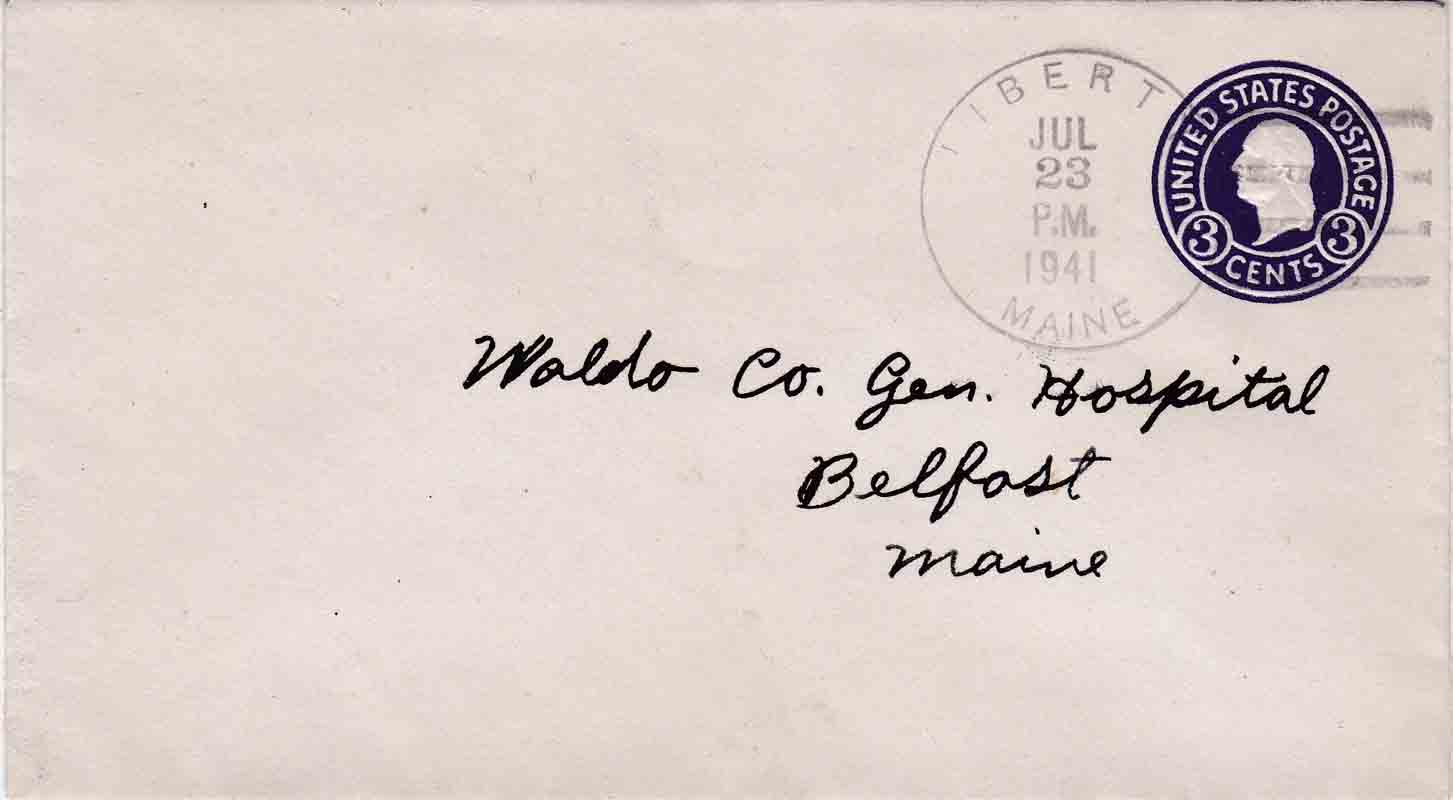 LIBERT
JUL
23
P.M.
1941
MAINE
UNITED STATES POSTAGE
3 3
CENTS
Waldo Co. Gen. Hospital
Belfast
Maine